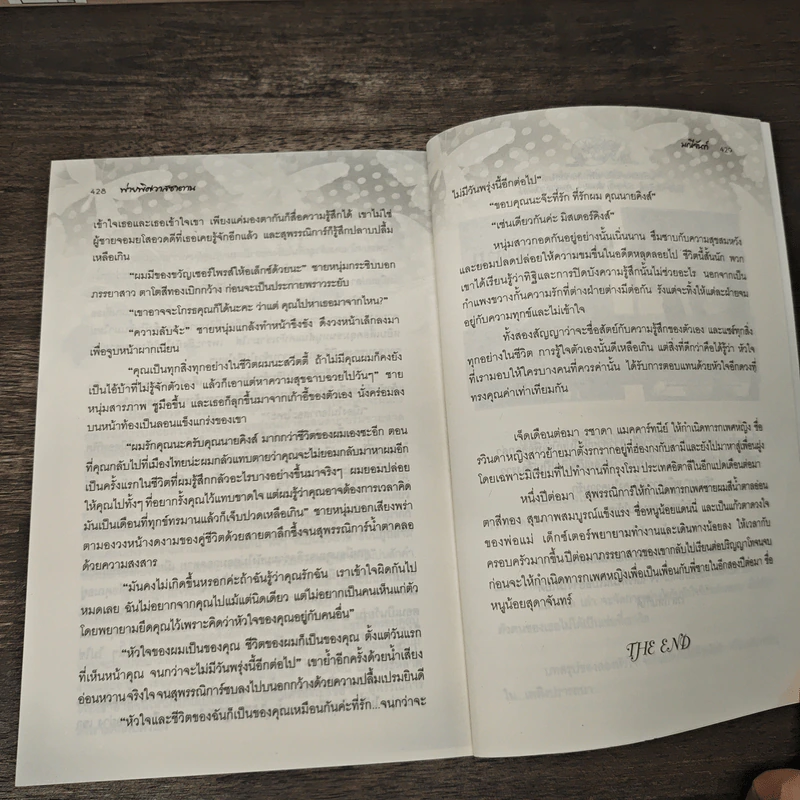 428 พ่ายพิศวาสซาตาน
เข้าใจเธอและเธอเข้าใจเขา เพียงแค่มองตากันก็สื่อความรู้สึกได้ เขาไม่ใช่
ผู้ชายจอมยโสอวดดีที่เธอเคยรู้จักอีกแล้ว และสุพรรณิการ์ก็รู้สึกปลาบปลื้ม
เหลือเกิน
“ผมมีของขวัญเซอร์ไพรส์ให้อเล็กซ์ด้วยนะ” ชายหนุ่มกระซิบบอก
ภรรยาสาว ตาโตสีทองเบิกกว้าง ก่อนจะเป็นประกายพราวระยับ
“เขาอาจจะโกรธคุณก็ได้นะคะ ว่าแต่ คุณไปหาเธอมาจากไหน?”
“ความลับจ้ะ” ชายหนุ่มแกล้งทำหน้าขึงขัง ดึงวงหน้าเล็กลงมา
เพื่อจูบหน้าผากเนียน
“คุณเป็นทุกสิ่งทุกอย่างในชีวิตผมนะสวีตตี้ ถ้าไม่มีคุณผมก็คงยัง
เป็นไอ้บ้าที่ไม่รู้จักตัวเอง แล้วก็เอาแต่หาความสุขฉาบฉวยไปวันๆ” ชาย
หนุ่มสารภาพ ชูมือขึ้น และเธอก็ลุกขึ้นมาจากเก้าอี้ของตัวเอง นั่งคร่อมลง
บนหน้าท้องเป็นลอนแข็งแกร่งของเขา
“ผมรักคุณนะครับคุณนายคิงส์ มากกว่าชีวิตของผมเองซะอีก ตอน
ที่คุณกลับไปที่เมืองไทยน่ะผมกลัวแทบตายว่าคุณจะไม่ยอมกลับมาหาผมอีก
เป็นครั้งแรกในชีวิตที่ผมรู้สึกกลัวอะไรบางอย่างขึ้นมาจริงๆ ผมยอมปล่อย
ให้คุณไปทั้งๆ ที่อยากรั้งคุณไว้แทบขาดใจ แต่ผมรู้ว่าคุณอาจต้องการเวลาคิด
มันเป็นเดือนที่ทุกข์ทรมานแล้วก็เจ็บปวดเหลือเกิน” ชายหนุ่มบอกเสียงพร่า
ตามองวงหน้างดงามของคู่ชีวิตด้วยสายตาลึกซึ้งจนสุพรรณิการ์น้ำตาคลอ
ด้วยความสงสาร
“มันคงไม่เกิดขึ้นหรอกค่ะถ้าฉันรู้ว่าคุณรักฉัน เราเข้าใจผิดกันไป
หมดเลย ฉันไม่อยากจากคุณไปแม้แต่นิดเดียว แต่ไม่อยากเป็นคนเห็นแก่ตัว
โดยพยายามยึดคุณไว้เพราะคิดว่าหัวใจของคุณอยู่กับคนอื่น”
“หัวใจของผมเป็นของคุณ ชีวิตของผมก็เป็นของคุณ ตั้งแต่วันแรก
ที่เห็นหน้าคุณ จนกว่าจะไม่มีวันพรุ่งนี้อีกต่อไป” เขาย้ำอีกครั้งด้วยน้ำเสียง
อ่อนหวาน จริงใจ จนสุพรรณิการ์ซบลงไปบนอกกว้างด้วยความปลื้มเปรมยินดี
“หัวใจและชีวิตของฉันก็เป็นของคุณเหมือนกันค่ะที่รัก...จนกว่าจะ
มณีจันท์ 429
ไม่มีวันพรุ่งนี้อีกต่อไป”
“ขอบคุณนะจ๊ะที่รัก ที่รักผม คุณนายคิงส์”
“เช่นเดียวกันค่ะ มิสเตอร์คิงส์”
หนุ่มสาวกอดกันอยู่อย่างนั้นเนิ่นนาน ซึมซาบกับความสุขสมหวัง
และยอมปลดปล่อยให้ความขมขื่นในอดีตหลุดลอยไป ชีวิตนี้สั้นนัก พวก
เขาได้เรียนรู้ว่าทิฐิและการปิดบังความรู้สึกนั้นไม่ช่วยอะไร นอกจากเป็น
กำแพงขวางกั้นความรักที่ต่างฝ่ายต่างมีต่อกัน รังแต่จะทิ้งให้แต่ละฝ่ายจม
อยู่กับความทุกข์และไม่เข้าใจ
ทั้งสองสัญญาว่าจะซื่อสัตย์กับความรู้สึกของตัวเอง และแชร์ทุกสิ่ง
ทุกอย่างในชีวิต การรู้ใจตัวเองนั้นดีเหลือเกิน แต่สิ่งที่ดีกว่าคือได้รู้ว่า หัวใจ
ที่เรามอบให้ใครบางคนที่ควรค่านั้น ได้รับการตอบแทนด้วยหัวใจอีกดวงที่
ทรงคุณค่าเท่าเทียมกัน
เจ็ดเดือนต่อมา รชาดา แมคคาร์ทนีย์ ให้กำเนิดทารกเพศหญิง ชื่อ
รวินดาหญิงสาวย้ายมาตั้งรกรากอยู่ที่ฮ่องกงกับสามีและยังไปมาหาสู่เพื่อนฝูง
โดยเฉพาะมิเรียมที่ไปทำงานที่กรุงโรม ประเทศอิตาลีในอีกแปดเดือนต่อมา
หนึ่งปีต่อมา สุพรรณิการ์ให้กำเนิดทารกเพศชายผมสีน้ำตาลอ่อน
ตาสีทอง สุขภาพสมบูรณ์แข็งแรง ชื่อหนูน้อยแดนนี่ และเป็นแก้วตาดวงใจ
ของพ่อแม่ เด็กซ์เตอร์พยายามทำงานและเดินทางน้อยลง ให้เวลากับ
ครอบครัวมากขึ้นปีต่อมาภรรยาสาวของเขากลับไปเรียนต่อปริญญาโทจนจบ
ก่อนจะให้กำเนิดทารกเพศหญิงเพื่อเป็นเพื่อนกับพี่ชายในอีกสองปีต่อมา ชื่อ
หนูน้อยสุดาจันทร์
THE END